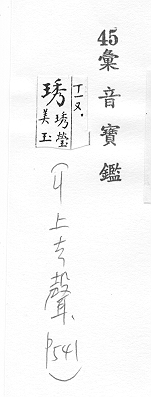 45彙音寶鑑
ㄒㄧㄡ.
琇
琇瑩
美玉
(ㄐ上去聲、P.541)